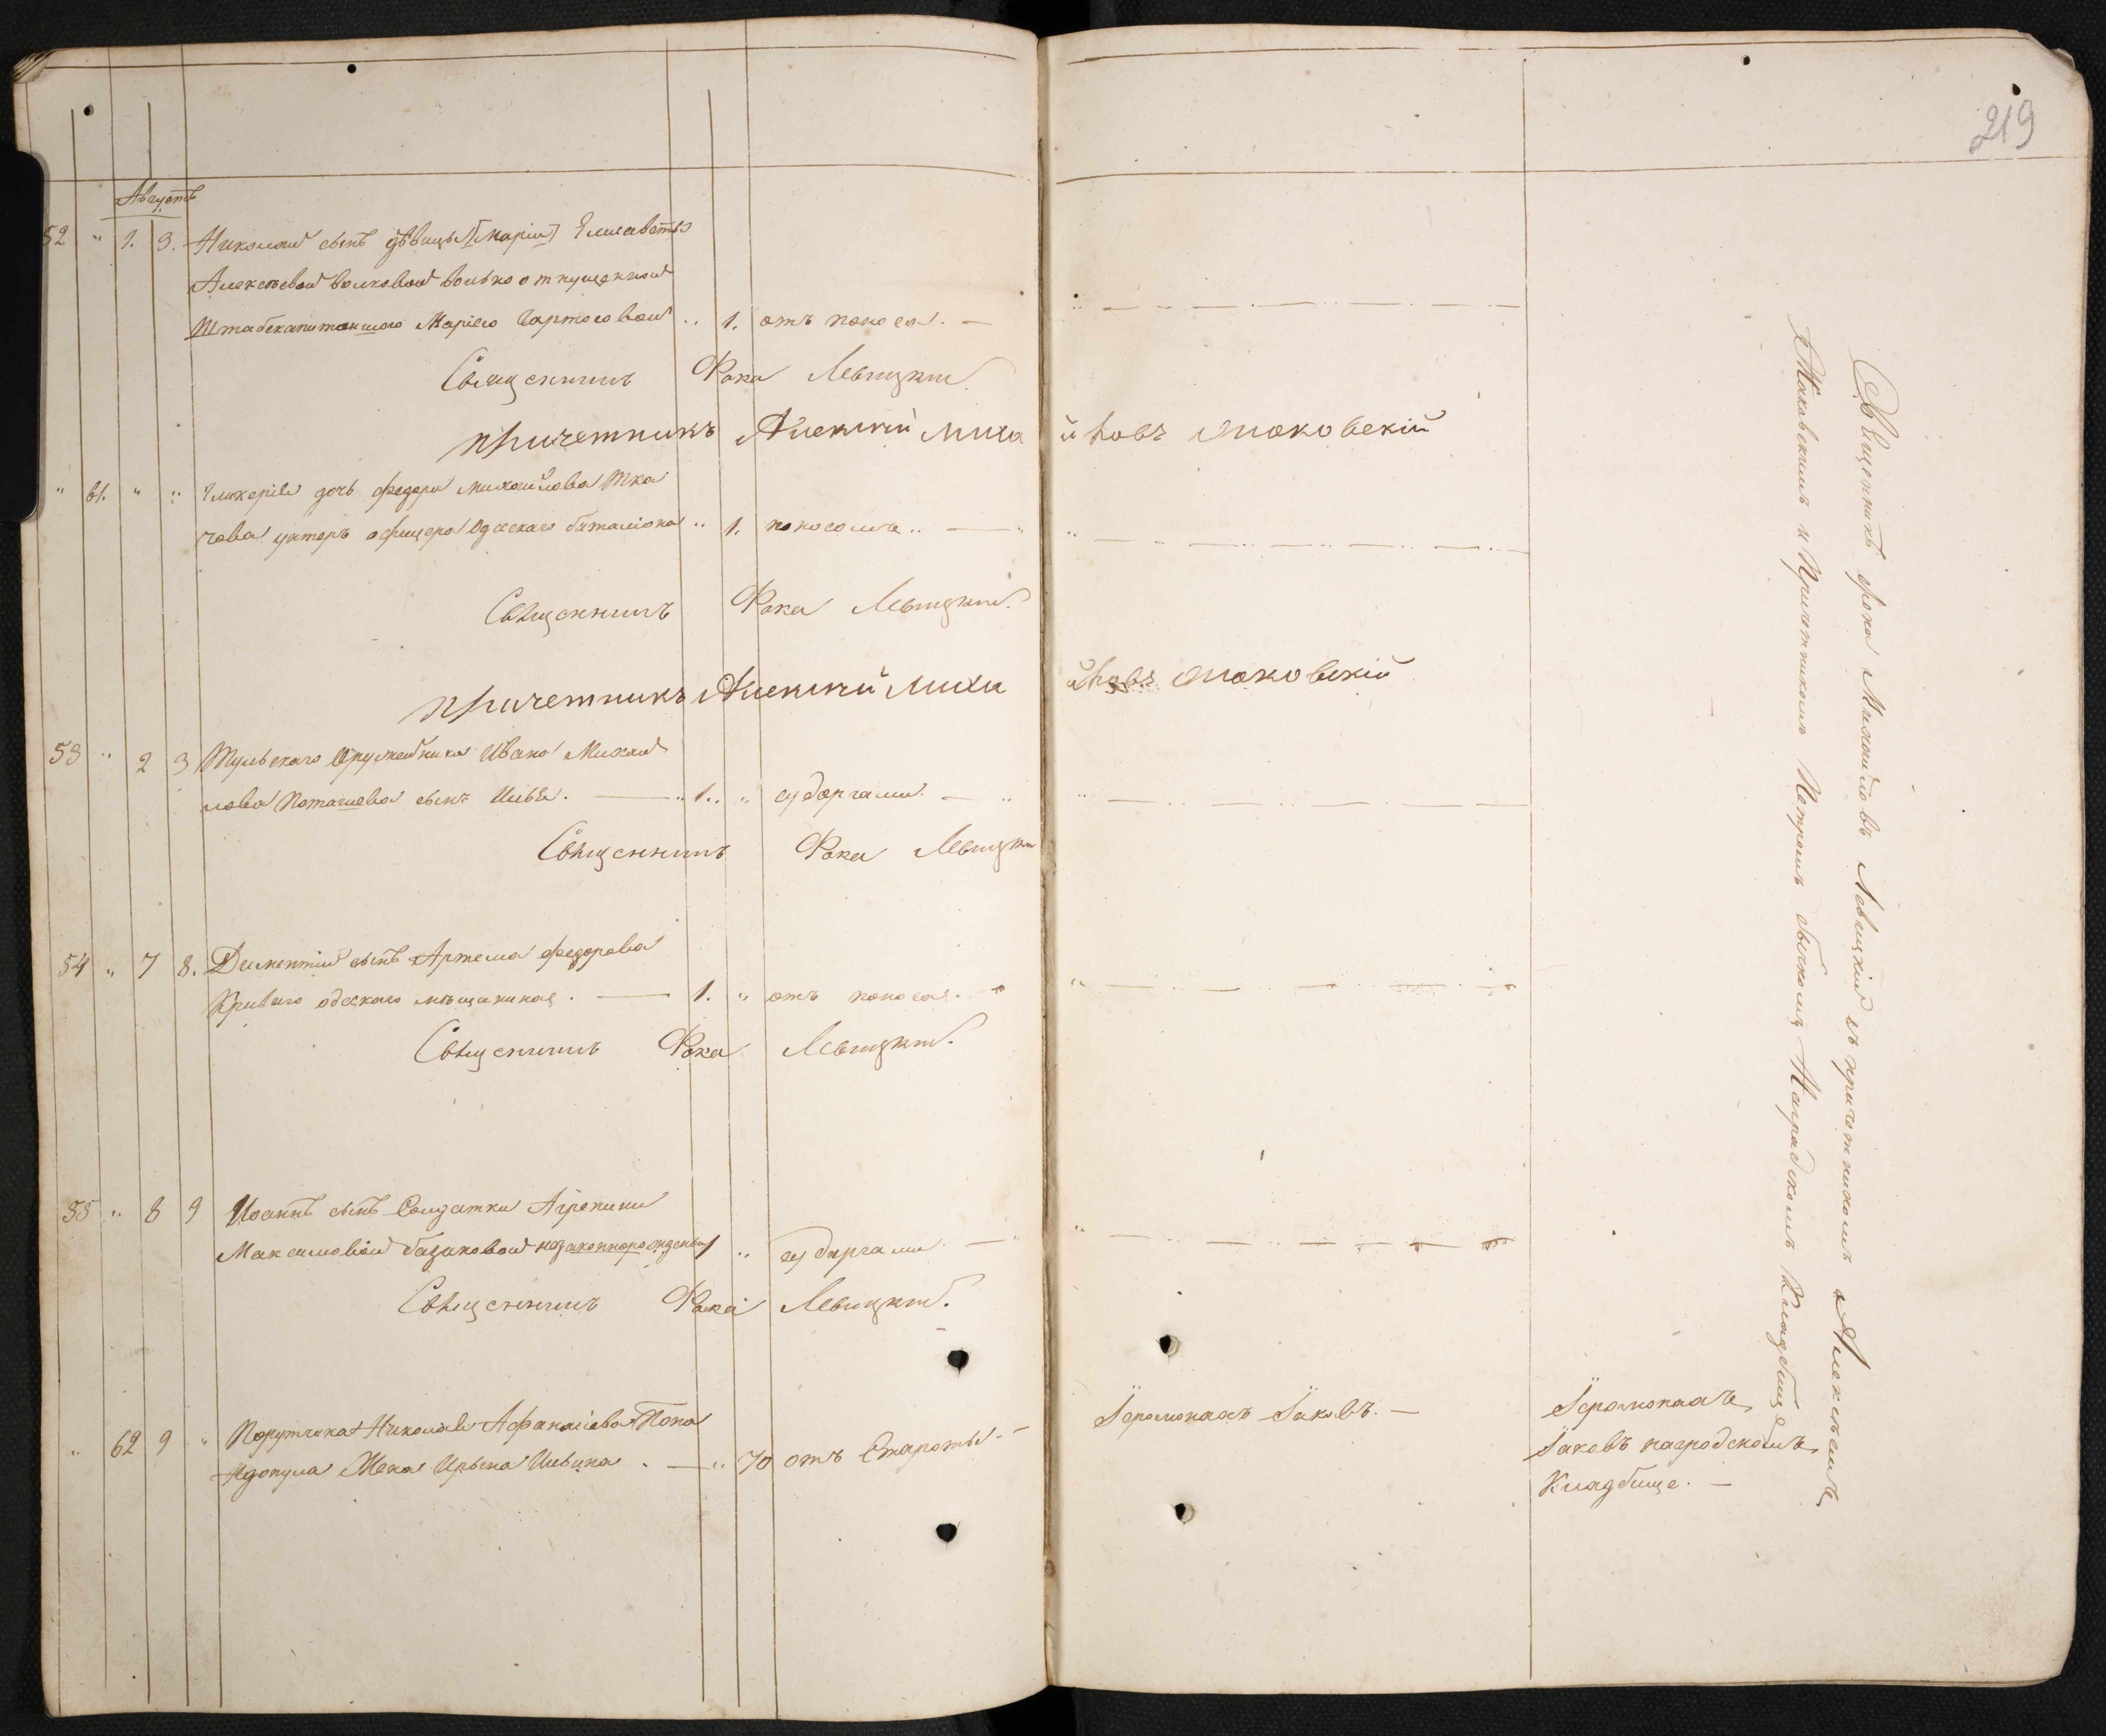 219
Августъ
52 " 1. 3. Николай сынъ дѣвицы [Маріи] Елисаветы
Алексѣевой Волковой вольно отпущенной
Штабскапитаншою Маріею
.. 1. отъ поноса. —
Священникъ Фока Левицкій
причетникъ Алексѣй Михайловъ Маковскій
" 61. " " Гликерія дочь Федора Михайлова Тка
чева унтеръ офицера Одесскаго баталіона .. 1. поносомъ .. —
Священникъ Фока Левицкій.
причетникъ Алексѣй Михайловъ Маковскій
53 " 2 3 Тульскаго Оружейника Ивана Михай
лова Потачиева сынъ Илья. — 1. " судоргами. —
Священникъ Фока Левицкій
54 " 7 8. Дементій сынъ Артема Федорова
Криваго одескаго мѣщанина. — 1. " отъ поноса.
Священникъ Фока Левицкій.
55 " 8 9 Иоаннъ сынъ Солдатки Агрепины
Максимовой Базиковой незаконнорожденый 1 .. судоргами —
Священникъ Фока Левицкій.
" 62 9 " Порутчика Николая Афанасіева Попа
ндопула Жена Ирьина Ильина. — 70 отъ Староты. —
Іеромонахъ Іаковъ. —
Іеромонахъ
Іаковъ нагродскомъ
Кладбище. —
Священникъ фока Михайловъ Левицкій съ причетникомъ Алексѣемъ
Маковскимъ и Причетникомъ Петромъ Нагродскомъ Кладбище